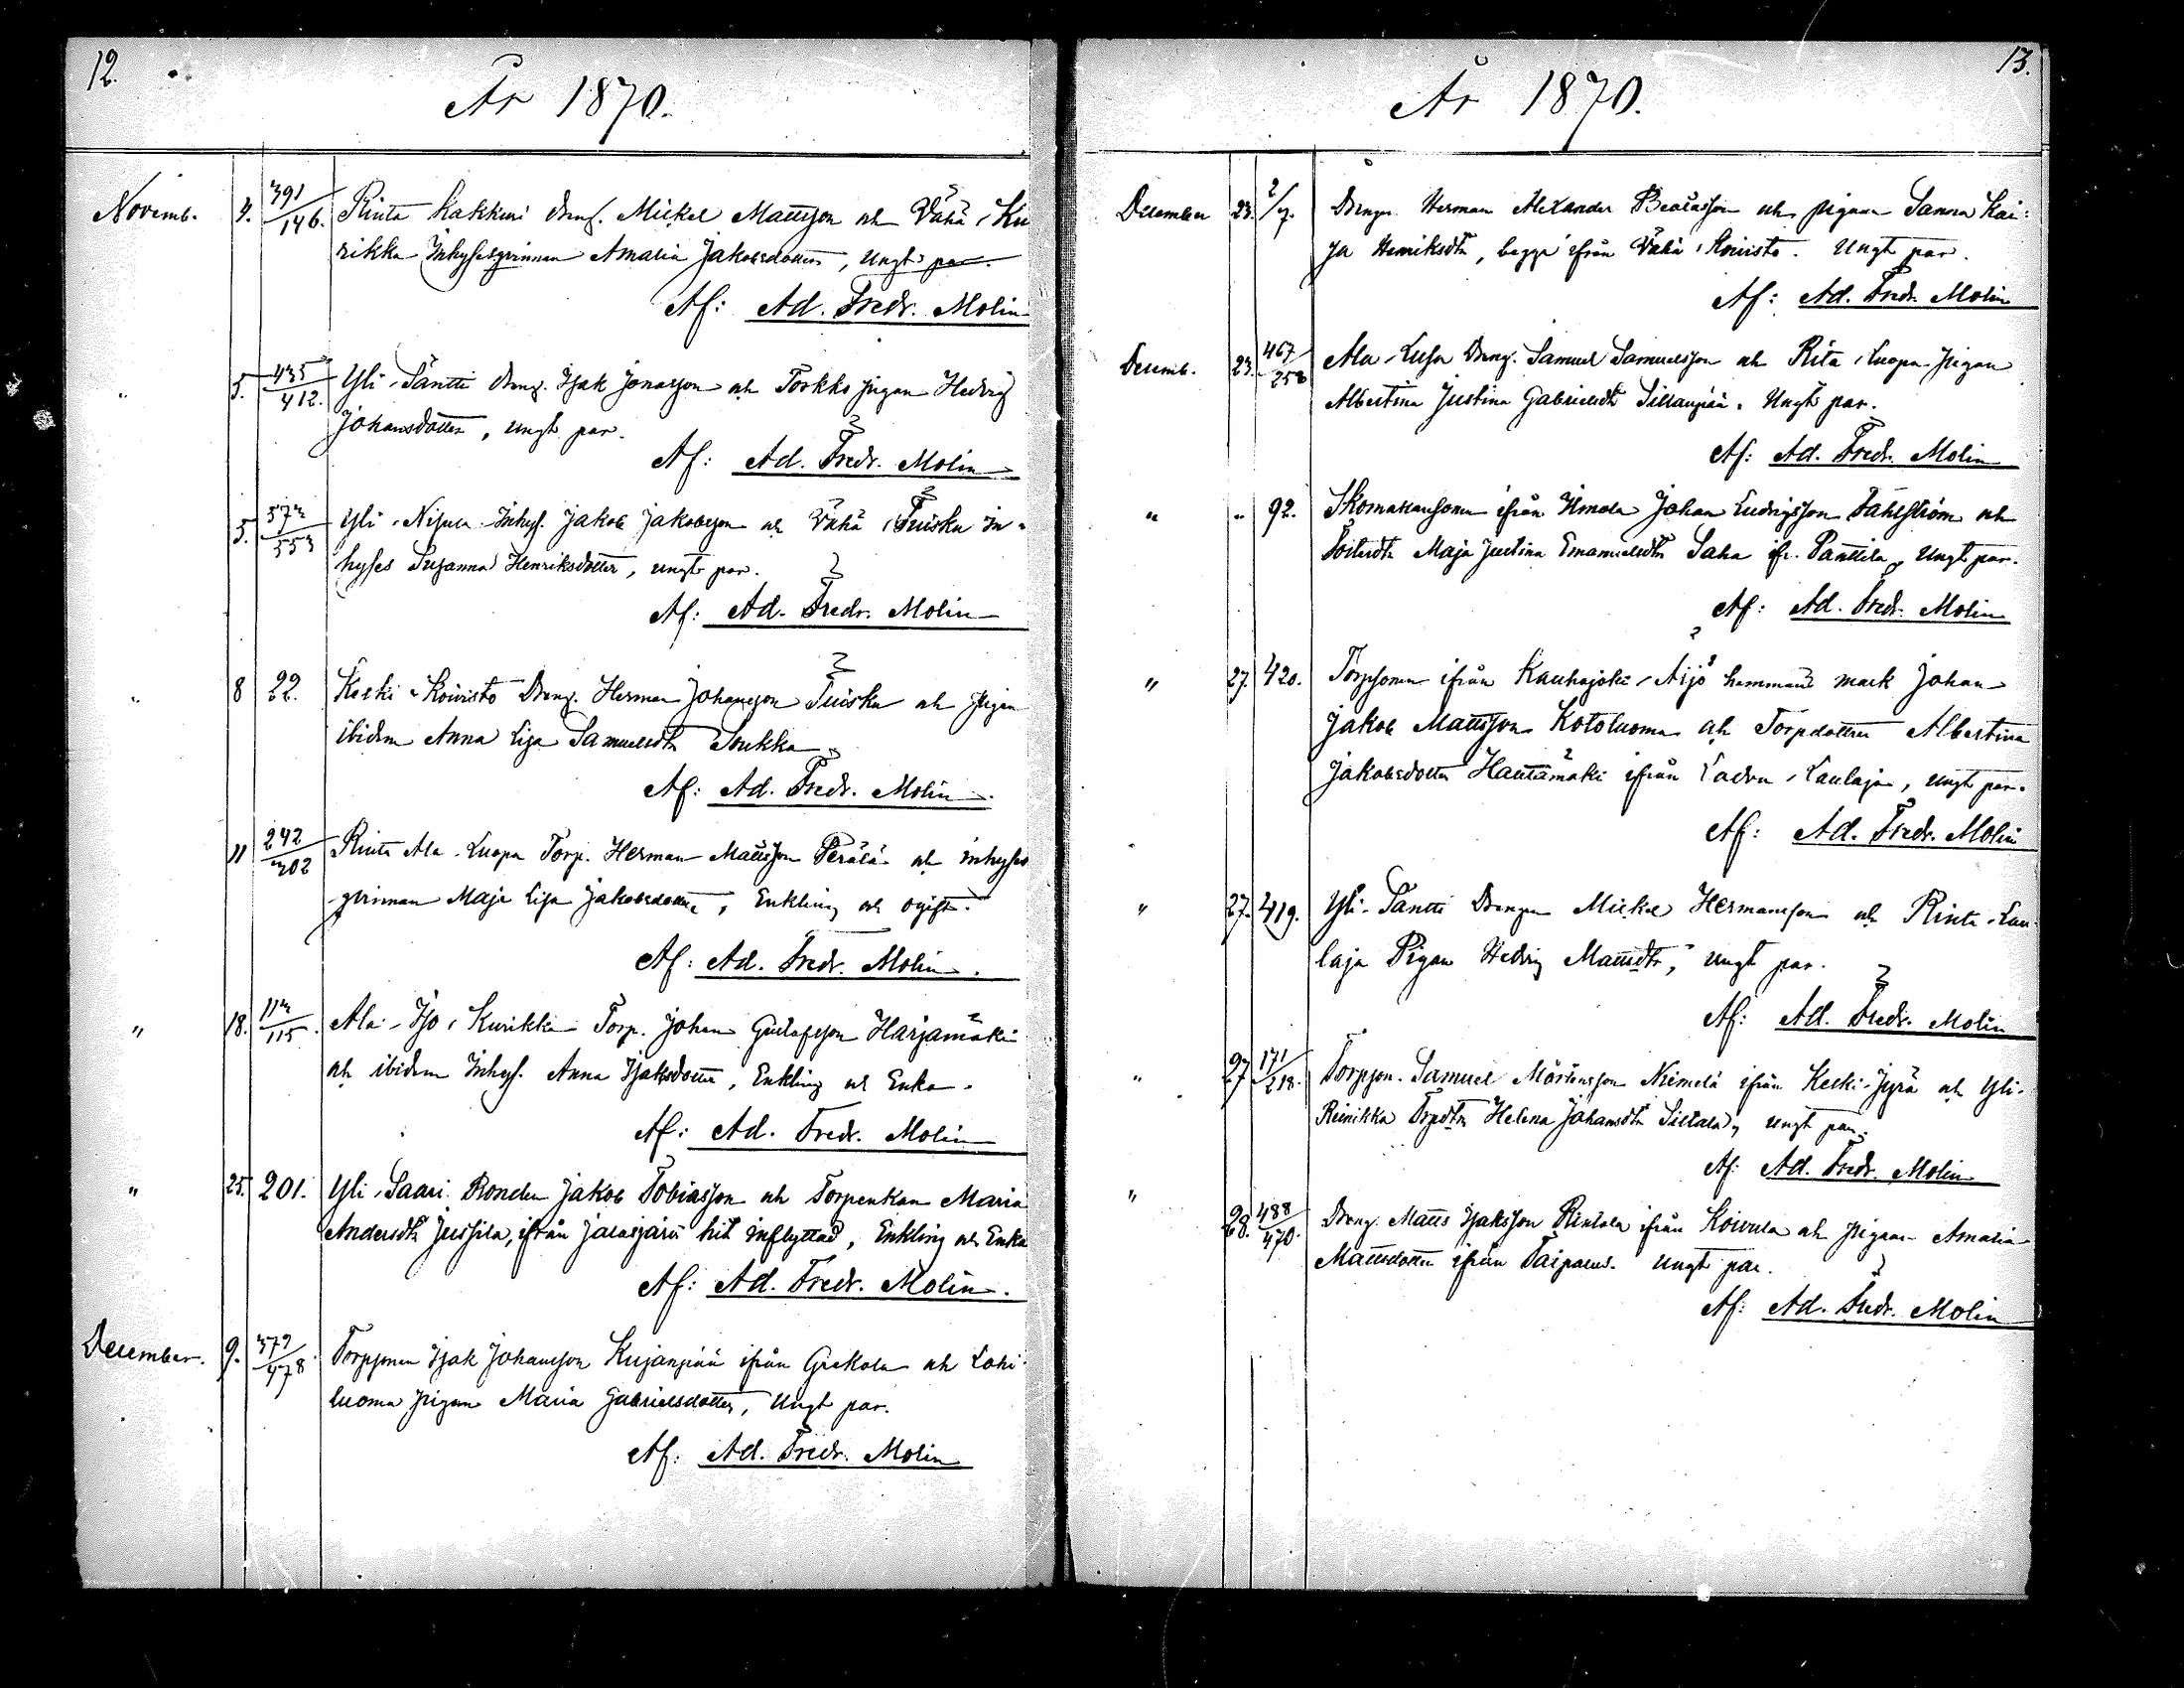 12.
År 1870.
Novemb. 4. 391/146. Rinta Kakkuri Dreng. Mickel Mattsson och Vähä-Ku
rikka Inhysesqvinnan Amalia Jakobsdotter, Ungt par.
Af: Ad. Fredr. Molin
" 5. 435/412. Yli-Täntti Dreng. Isak Jonasson och Torkko pigan Hedvig
Johansdotter, ungt par.
Af: Ad. Fredr. Molin
5. 373/353 Yli-Nisula Inhys. Jakob Jakobsson och Vähä-Tuisku in-
hyses Susanna Henriksdotter, ungt par.
Af: Ad. Fredr. Molin
" 8 22. Keski-Koivisto Dreng. Herman Johansson Tuisku och Pigan
ibidem Anna Lisa Samuelsdtr Soukka
Af: Ad. Fredr. Molin
11 242/302 Rinta Ala-Luopa Torp. Herman Mattsson Perälä och inhyses
qvinnan Maja Lisa Jakobsdotter, Enkling och ogift.
Af: Ad. Fredr. Molin.
" 18. 113/115. Ala-Iso-Kurikka Torp. Johan Gustafsson Harjamäki
och ibidem Inhys. Anna Isaksdotter, Enkling och Enka.
Af: Ad. Fredr. Molin
" 25. 201. Yli-Saari Bonden Jakob Tobiasson och Torpenkan Maria
Andersdtr Jussila, ifrån Jalasjärvi hit inflyttad, Enkling och Enka
Af: Ad. Fredr. Molin.
December. 9. 372/478. Torpsonen Isak Johansson Kujanpää ifrån Grekola och Lohi-
luoma pigan Maria Gabrielsdotter, Ungt par.
Af: Ad. Fredr. Molin
13.
År 1870.
December 23. 2/7. Drengen Herman Alexander Beatasson och pigan Sanna Kai-
sa Henriksdtr, begge ifrån Vähä-Koivisto. Ungt par.
Af: Ad. Fredr. Molin
Decemb. 23. 467/258 Ala-Luopa Dreng. Samuel Samuelsson och Rita-Luopa Pigan
Albertina Justina Gabrielsdtr Sillanpää. Ungt par.
Af: Ad. Fredr. Molin
" " 92. Skomakaresonen ifrån Ilmola Johan Ludvigsson Fahlström och
Maja Justina Emanuelsdtr Saha ifr. Panttila, Ungt par.
Af: Ad. Fredr. Molin
" 27. 420. Torpsonen ifrån Kauhajoki-Äijö hemmans mark Johan
Jakob Mattsson Kotoluoma och Torpdottren Albertina
Jakobsdotter Hautamäki ifrån Ladvu-Laulaja, ungt par.
Af: Ad. Fredr. Molin
" 27. 419. Yli-Täntti Drengen Mickel Hermansson och Rinta-Lau-
laja Pigan Hedvig Mattsdtr, ungt par.
Af: Ad. Fredr. Molin
" 27 171/218. Torpson. Samuel Mårtensson Niemelä ifrån Keski-Jyrä och Yli-
Reinikka Torpdtrn Helena Johansdtr Siltala, ungt par.
Af: Ad. Fredr. Molin
" 28. 488/470. Dreng. Matts Isaksson Rintala ifrån Koivula och pigan Amalia
Mattsdotter ifrån Taipalus. Ungt par.
Af: Ad. Fredr. Molin